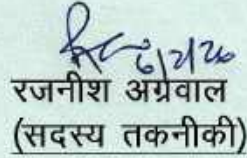 6/2/20
रजनीश अग्रवाल
(सदस्य तकनीकी)